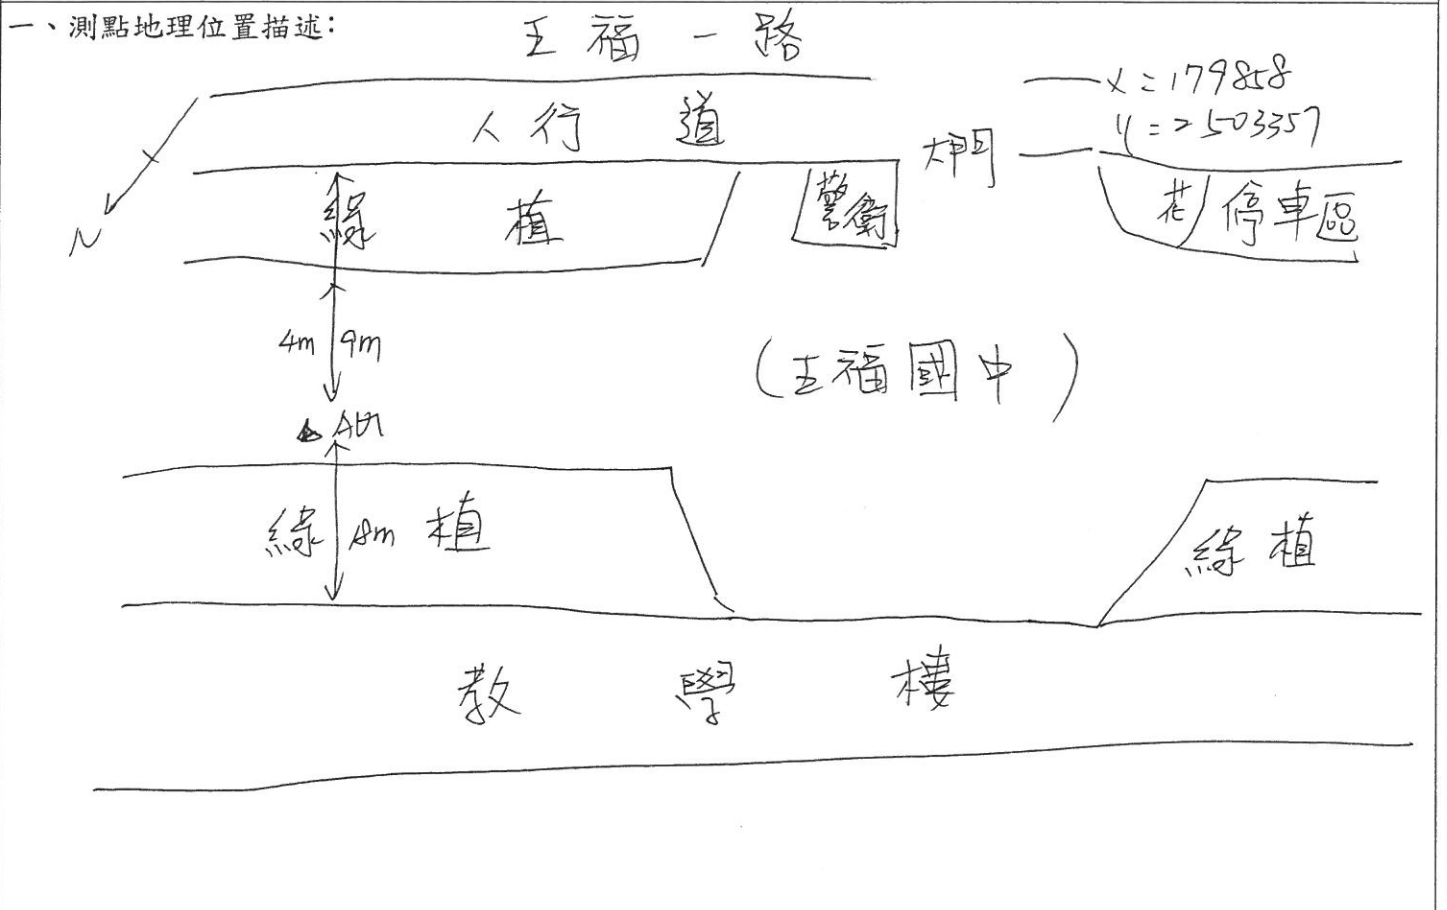 一、測點地理位置描述:
王福一路
x=179858
y=2503357
人行道
大門
綠植
警衛
花
停車區
N
4m
9m
(王福國中)
綠植
8m
綠植
教學樓